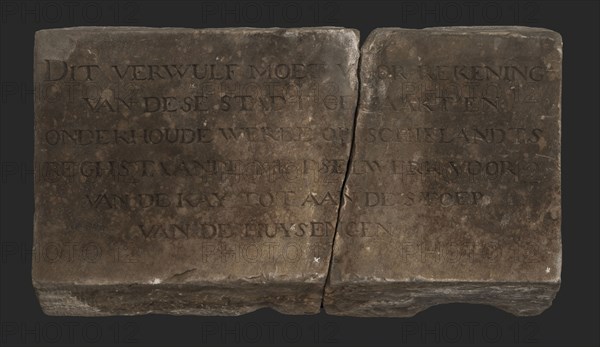 DIT VERWULF MOET VOOR REKENING
VAN DESE STADT GEMAAKT EN
ONDERHOUDE WERDEN OP SCHIELANDTS
REGHT VANDE
VOOR
VAN DE KAY TOT AAN DE STOEP
VAN DE HUYSEN